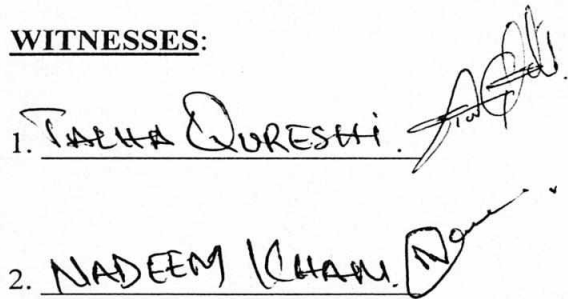 WITNESSES:
1. TALHA QURESHI.
2. NADEEM KHAN.